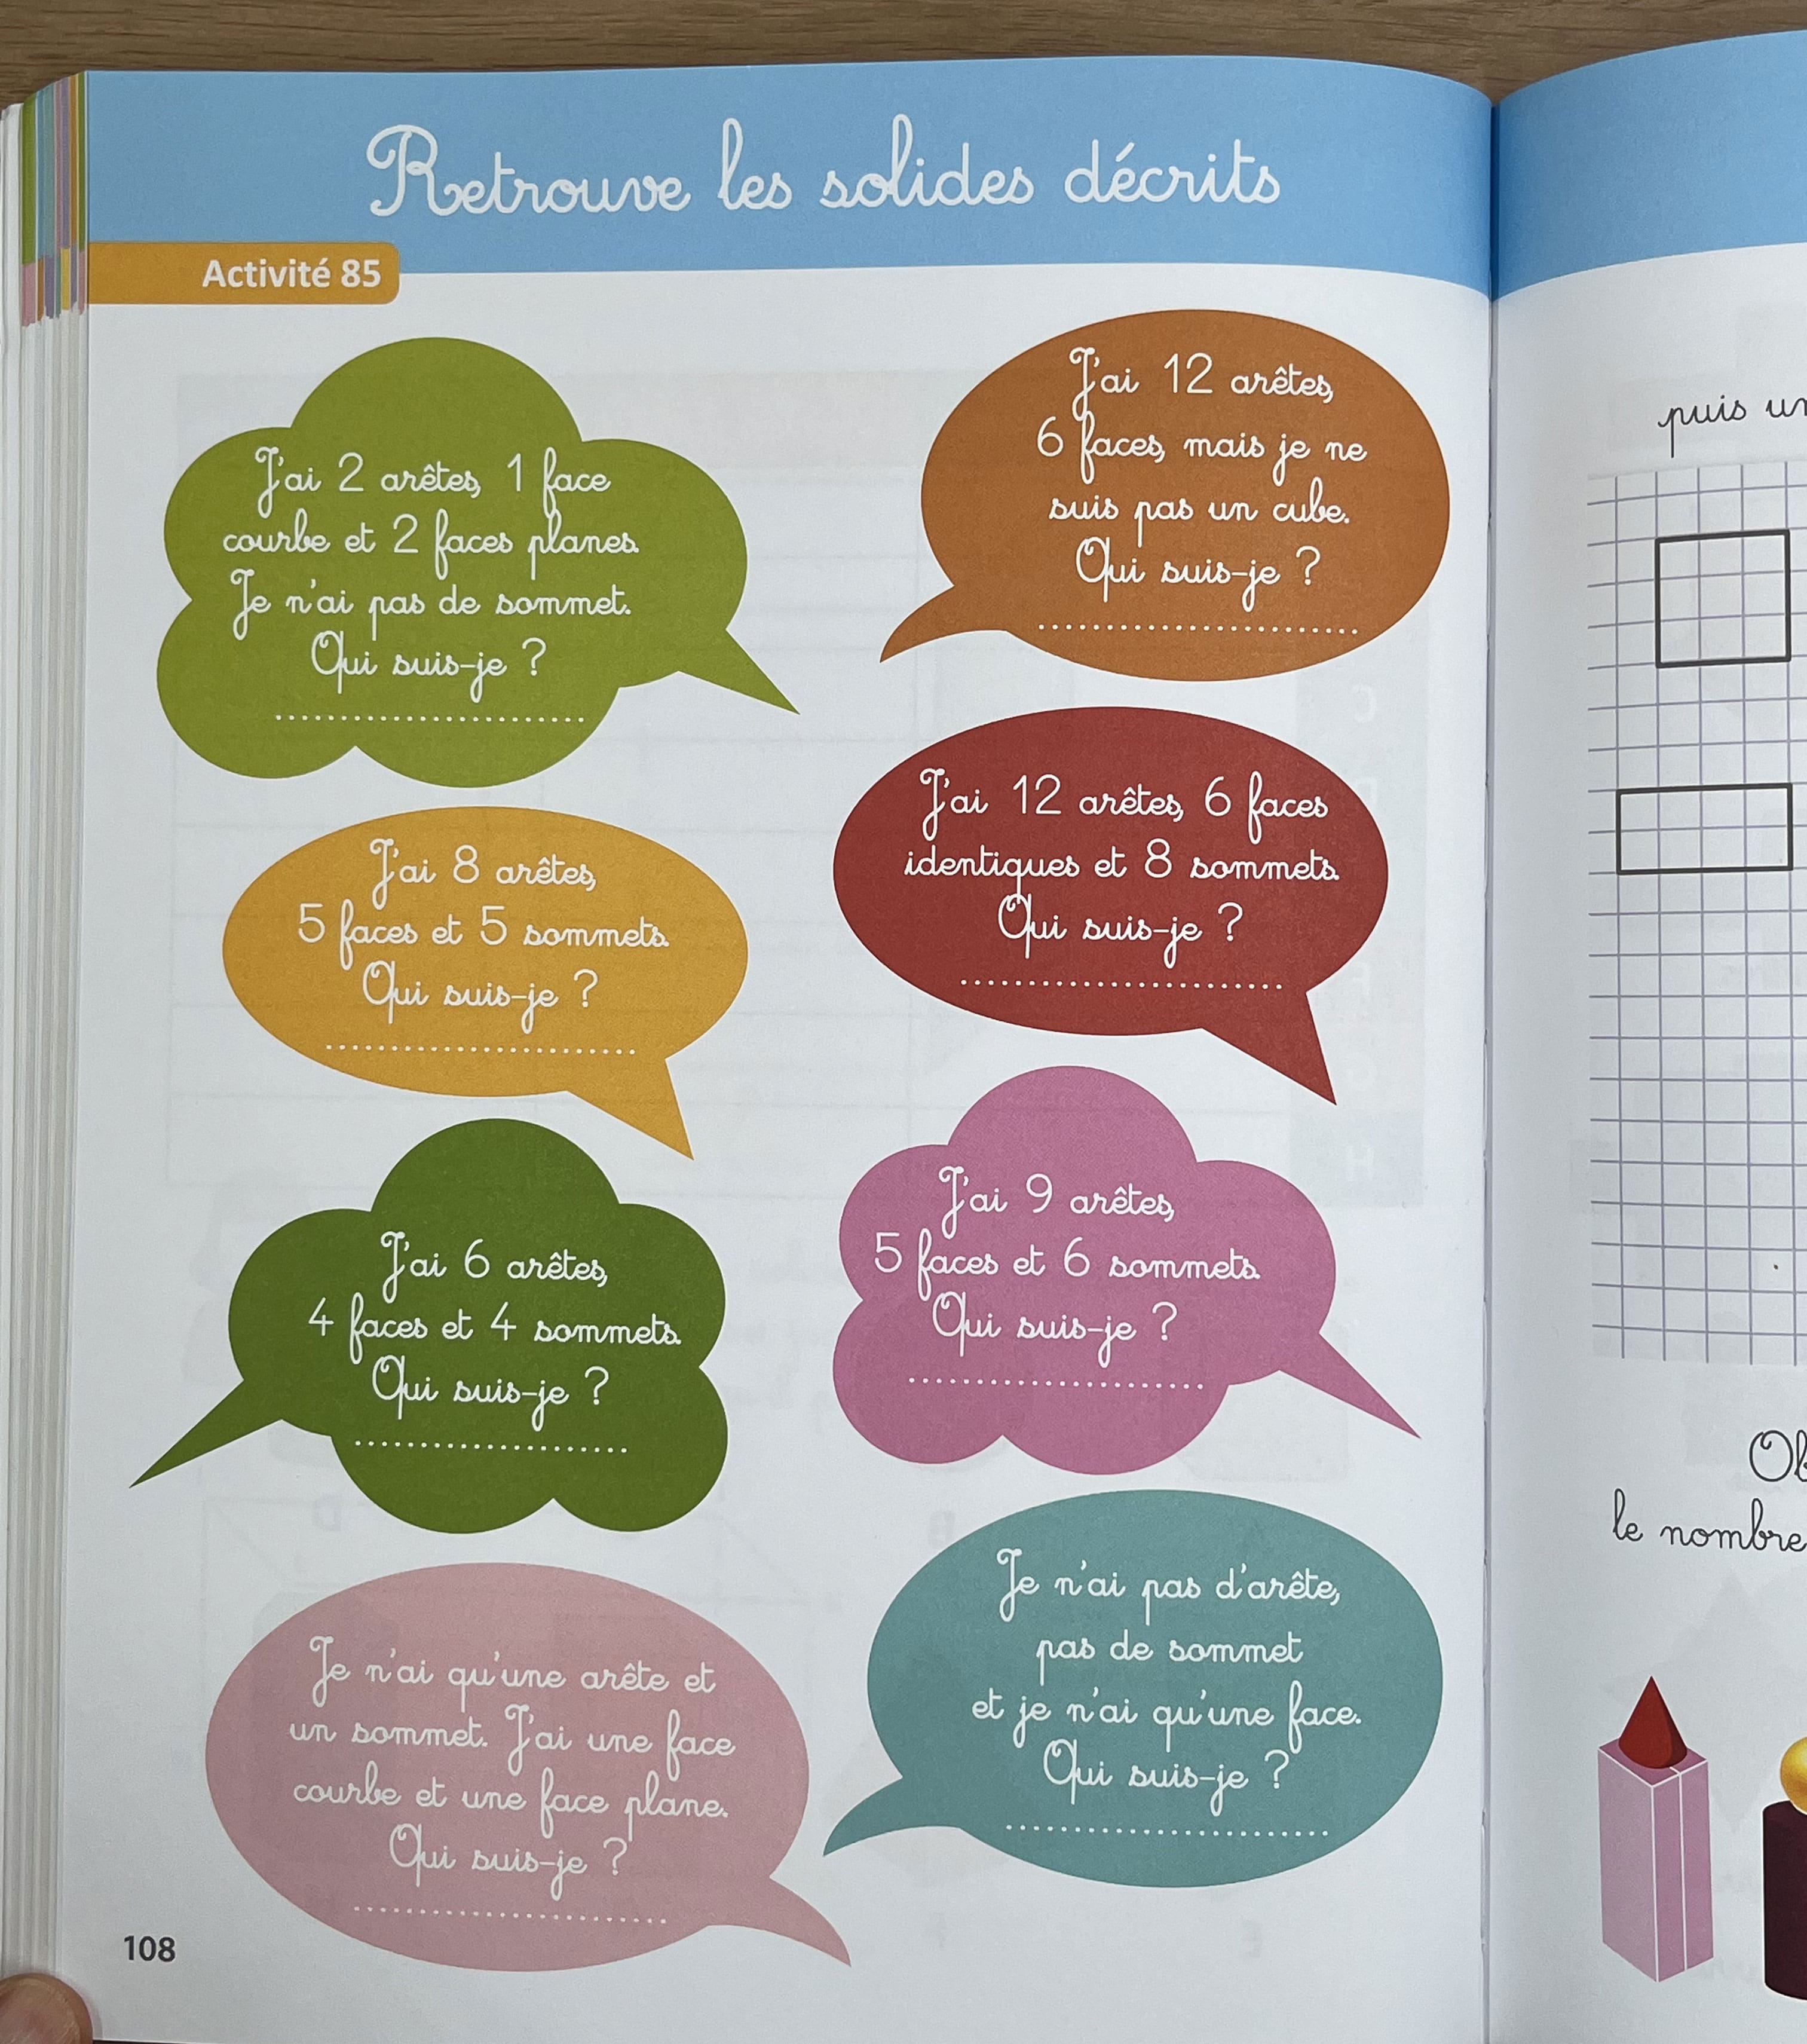 Retrouve les solides décrits
Activité 85
J'ai 2 arêtes, 1 face
courbe et 2 faces planes.
Je n'ai pas de sommet.
Qui suis-je ?
J'ai 12 arêtes,
6 faces, mais je ne
suis pas un cube.
Qui suis-je ?
J'ai 8 arêtes,
5 faces et 5 sommets.
Qui suis-je ?
J'ai 12 arêtes, 6 faces
identiques et 8 sommets.
Qui suis-je ?
J'ai 6 arêtes,
4 faces et 4 sommets.
Qui suis-je ?
J'ai 9 arêtes,
5 faces et 6 sommets.
Qui suis-je ?
Je n'ai qu'une arête et
un sommet. J'ai une face
courbe et une face plane.
Qui suis-je ?
Je n'ai pas d'arête,
pas de sommet
et je n'ai qu'une face.
Qui suis-je ?
108
puis
le nombre